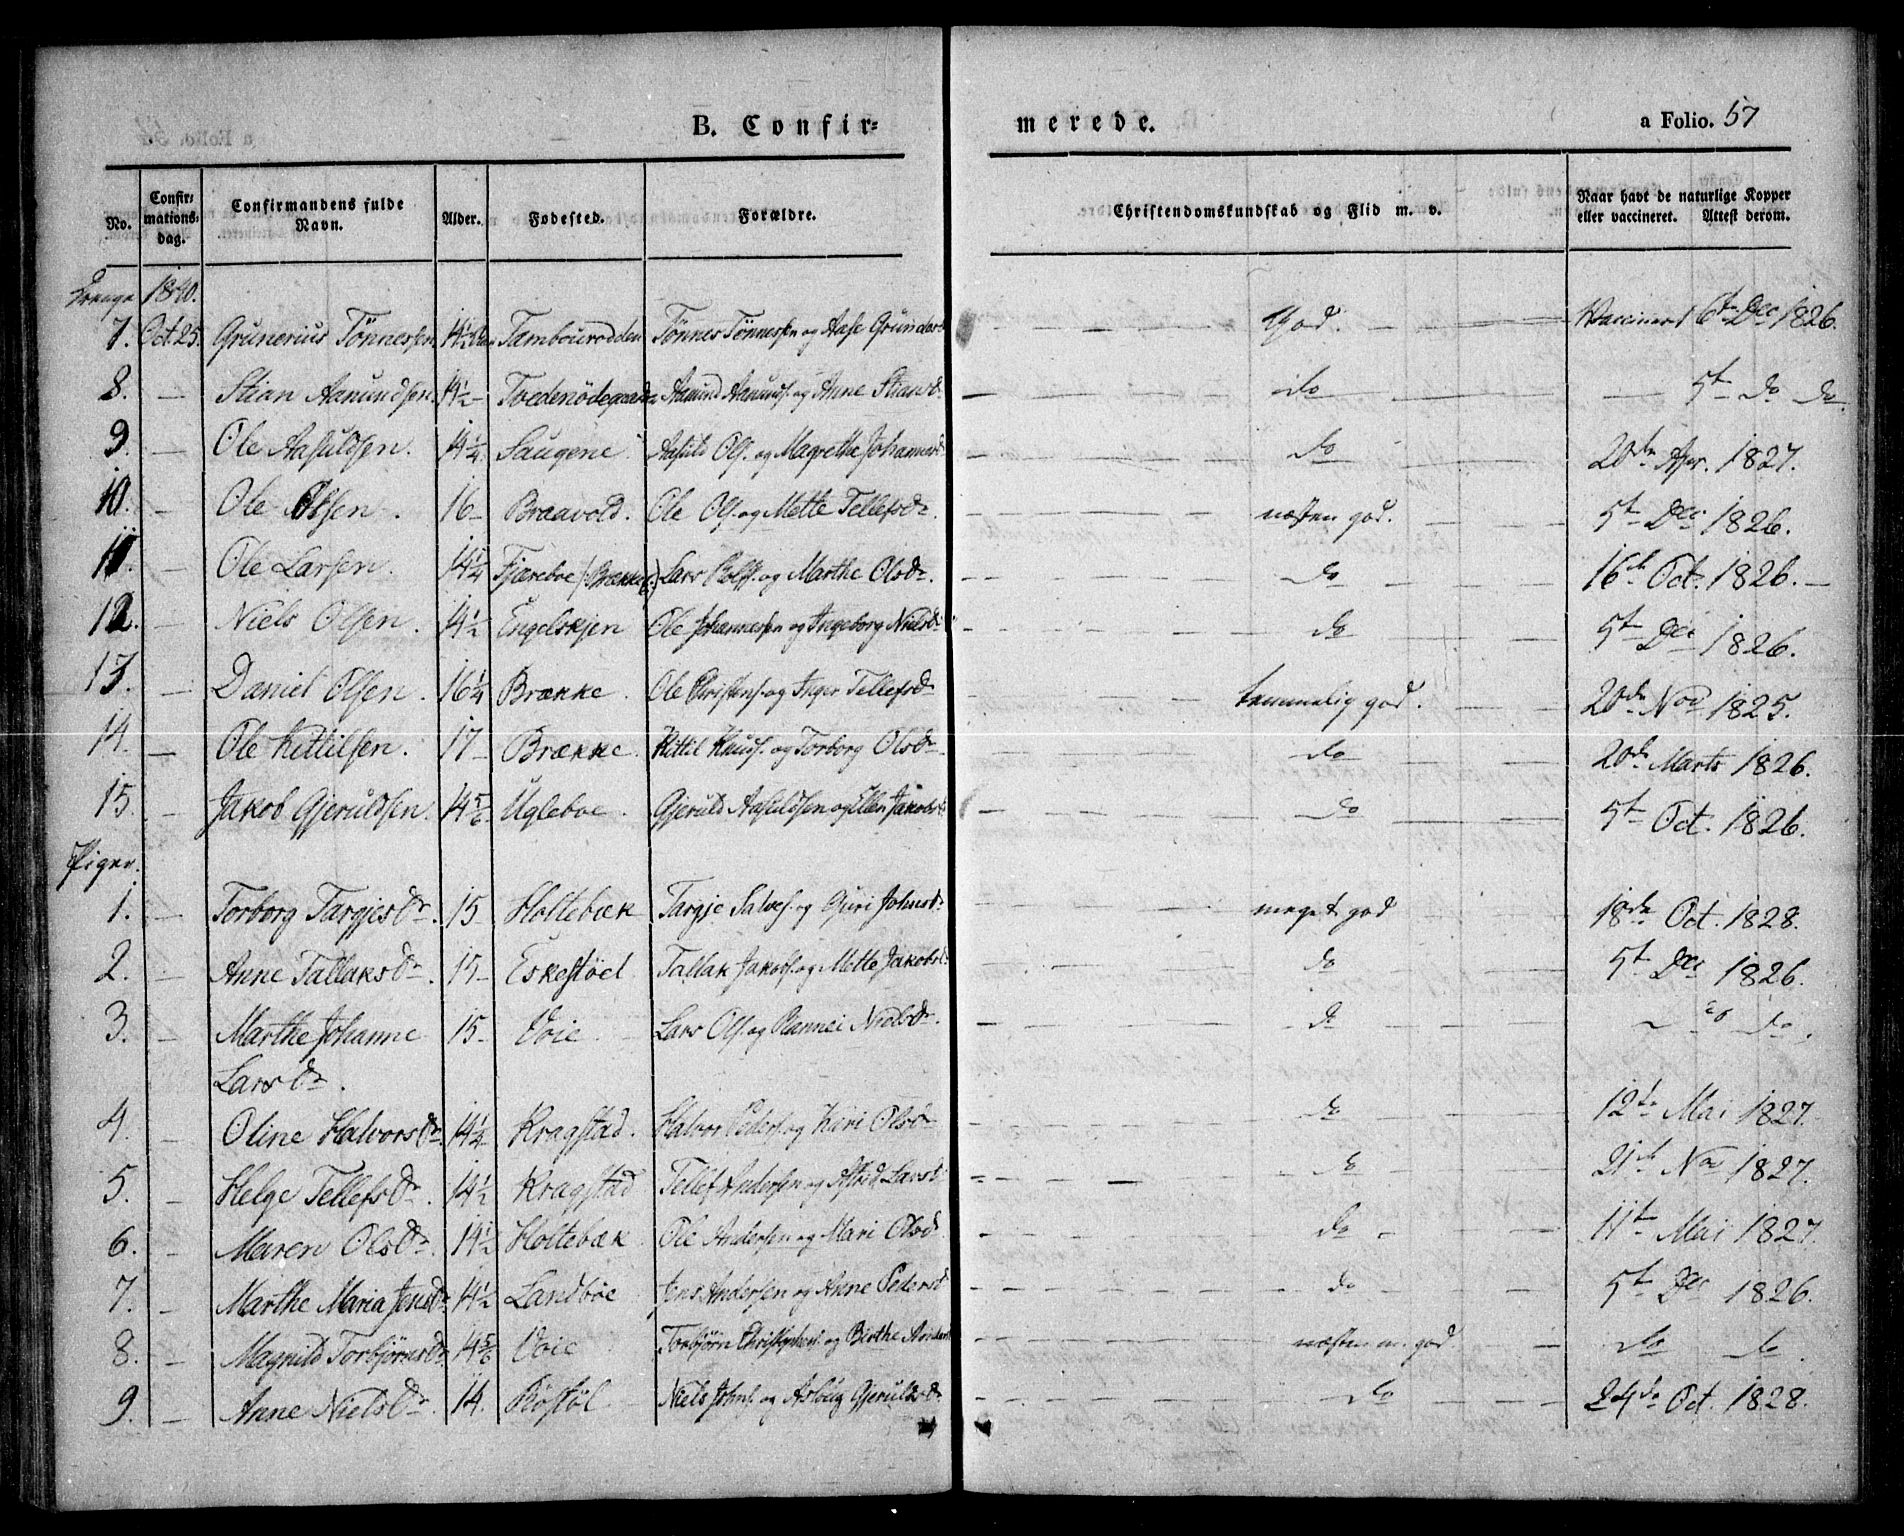 B. Confir= merede. a Folio. 57
No. Confir= mations= dag. Confirmandens fulde Navn. Alder. Fødested. Forældre. Christendomskundskab og Flid m. v. Naar havt de naturlige Kopper eller vaccineret. Attest derom.
Drenge 1840.
7. Oct. 25. Grunerius Tönnessen 14 1/2 Tambourodden Tönnes Tönnesen og Aase Gundersd God. Vaccineret 6te Dec 1826.
8. — Stian Aanundsen 14 1/2 — Tvedenödegaard Aanund Aanunds. og Anne Stiansd. do — 5t do do.
9. — Ole Aasuldsen. 14 1/4. Saugene Aasuld Ols. og Magrethe Johannesd do 20de Apr. 1827.
10. — Ole Olsen. 16 — Braavold. Ole Ols. og Mette Tellefsdr. næsten god. 5t Dec 1826.
11. — Ole Larsen. 14 1/4 Fjæreboe (Brække) Lars Rolfs. og Marthe Olsdr. do 16de Oct. 1826. —
12. — Niels Olsen. 14 1/2 Engelskjen Ole Johannesen og Ingeborg Nielsdr do 5t Dec 1826.
13. — Daniel Olsen. 16 1/4 Brække. Ole Christens. og Inger Tellefsdr temmelig god. 20de Nov 1825.
14. — Ole Kittilsen. 17 — Brække. Kittil Knuds. og Torborg Olsdr do 20de Marts 1826.
15. — Jakob Gjeruldsen. 14 5/6 Ugleboe. Gjeruld Aasuldsen og Ellen Jakobsd do 5t Oct. 1826.
Piger.
1. — Torborg Targjesdr. 15 Holtebæk Targje Salves. og Guri Johnsdr meget god 18de Oct. 1828.
2. Anne Tallaksdr. 15 — Eskestöel Tallak Jakobs. og Mette Jakobsd do 5t Dec 1826.
3. — Marthe Johanne 15 — Voie Lars Ols. og Rannei Nielsdr. do — do do.
Larsdr.
4. — Oline Halvorsdr. 14 1/4 Kragstad. Halvor Peders. og Kari Olsdr do 12te Mai 1827.
5. — Helge Tellefsdr. 14 1/2 Kragstad Tellef Andersen og Astrid Larsd do 21de Nov 1827.
6. — Maren Olsdr. 14 1/2 Holtebæk Ole Andersen og Mari Olsd do 11te Mai 1827.
7. — Marthe Maria Jensdr 14 1/2 Landböe Jens Andersen og Anne Pedersd do 5t Dec 1826.
8. — Magnild Torbjörnsdr. 14 5/6 Voie Torbjörn Christophers. og Birthe næsten m. god. do do.
9. — Anne Nielsdr. 14. Röstöl Niels Johns. og Asbiug Gjeruldsdr do 24de Oct. 1828.